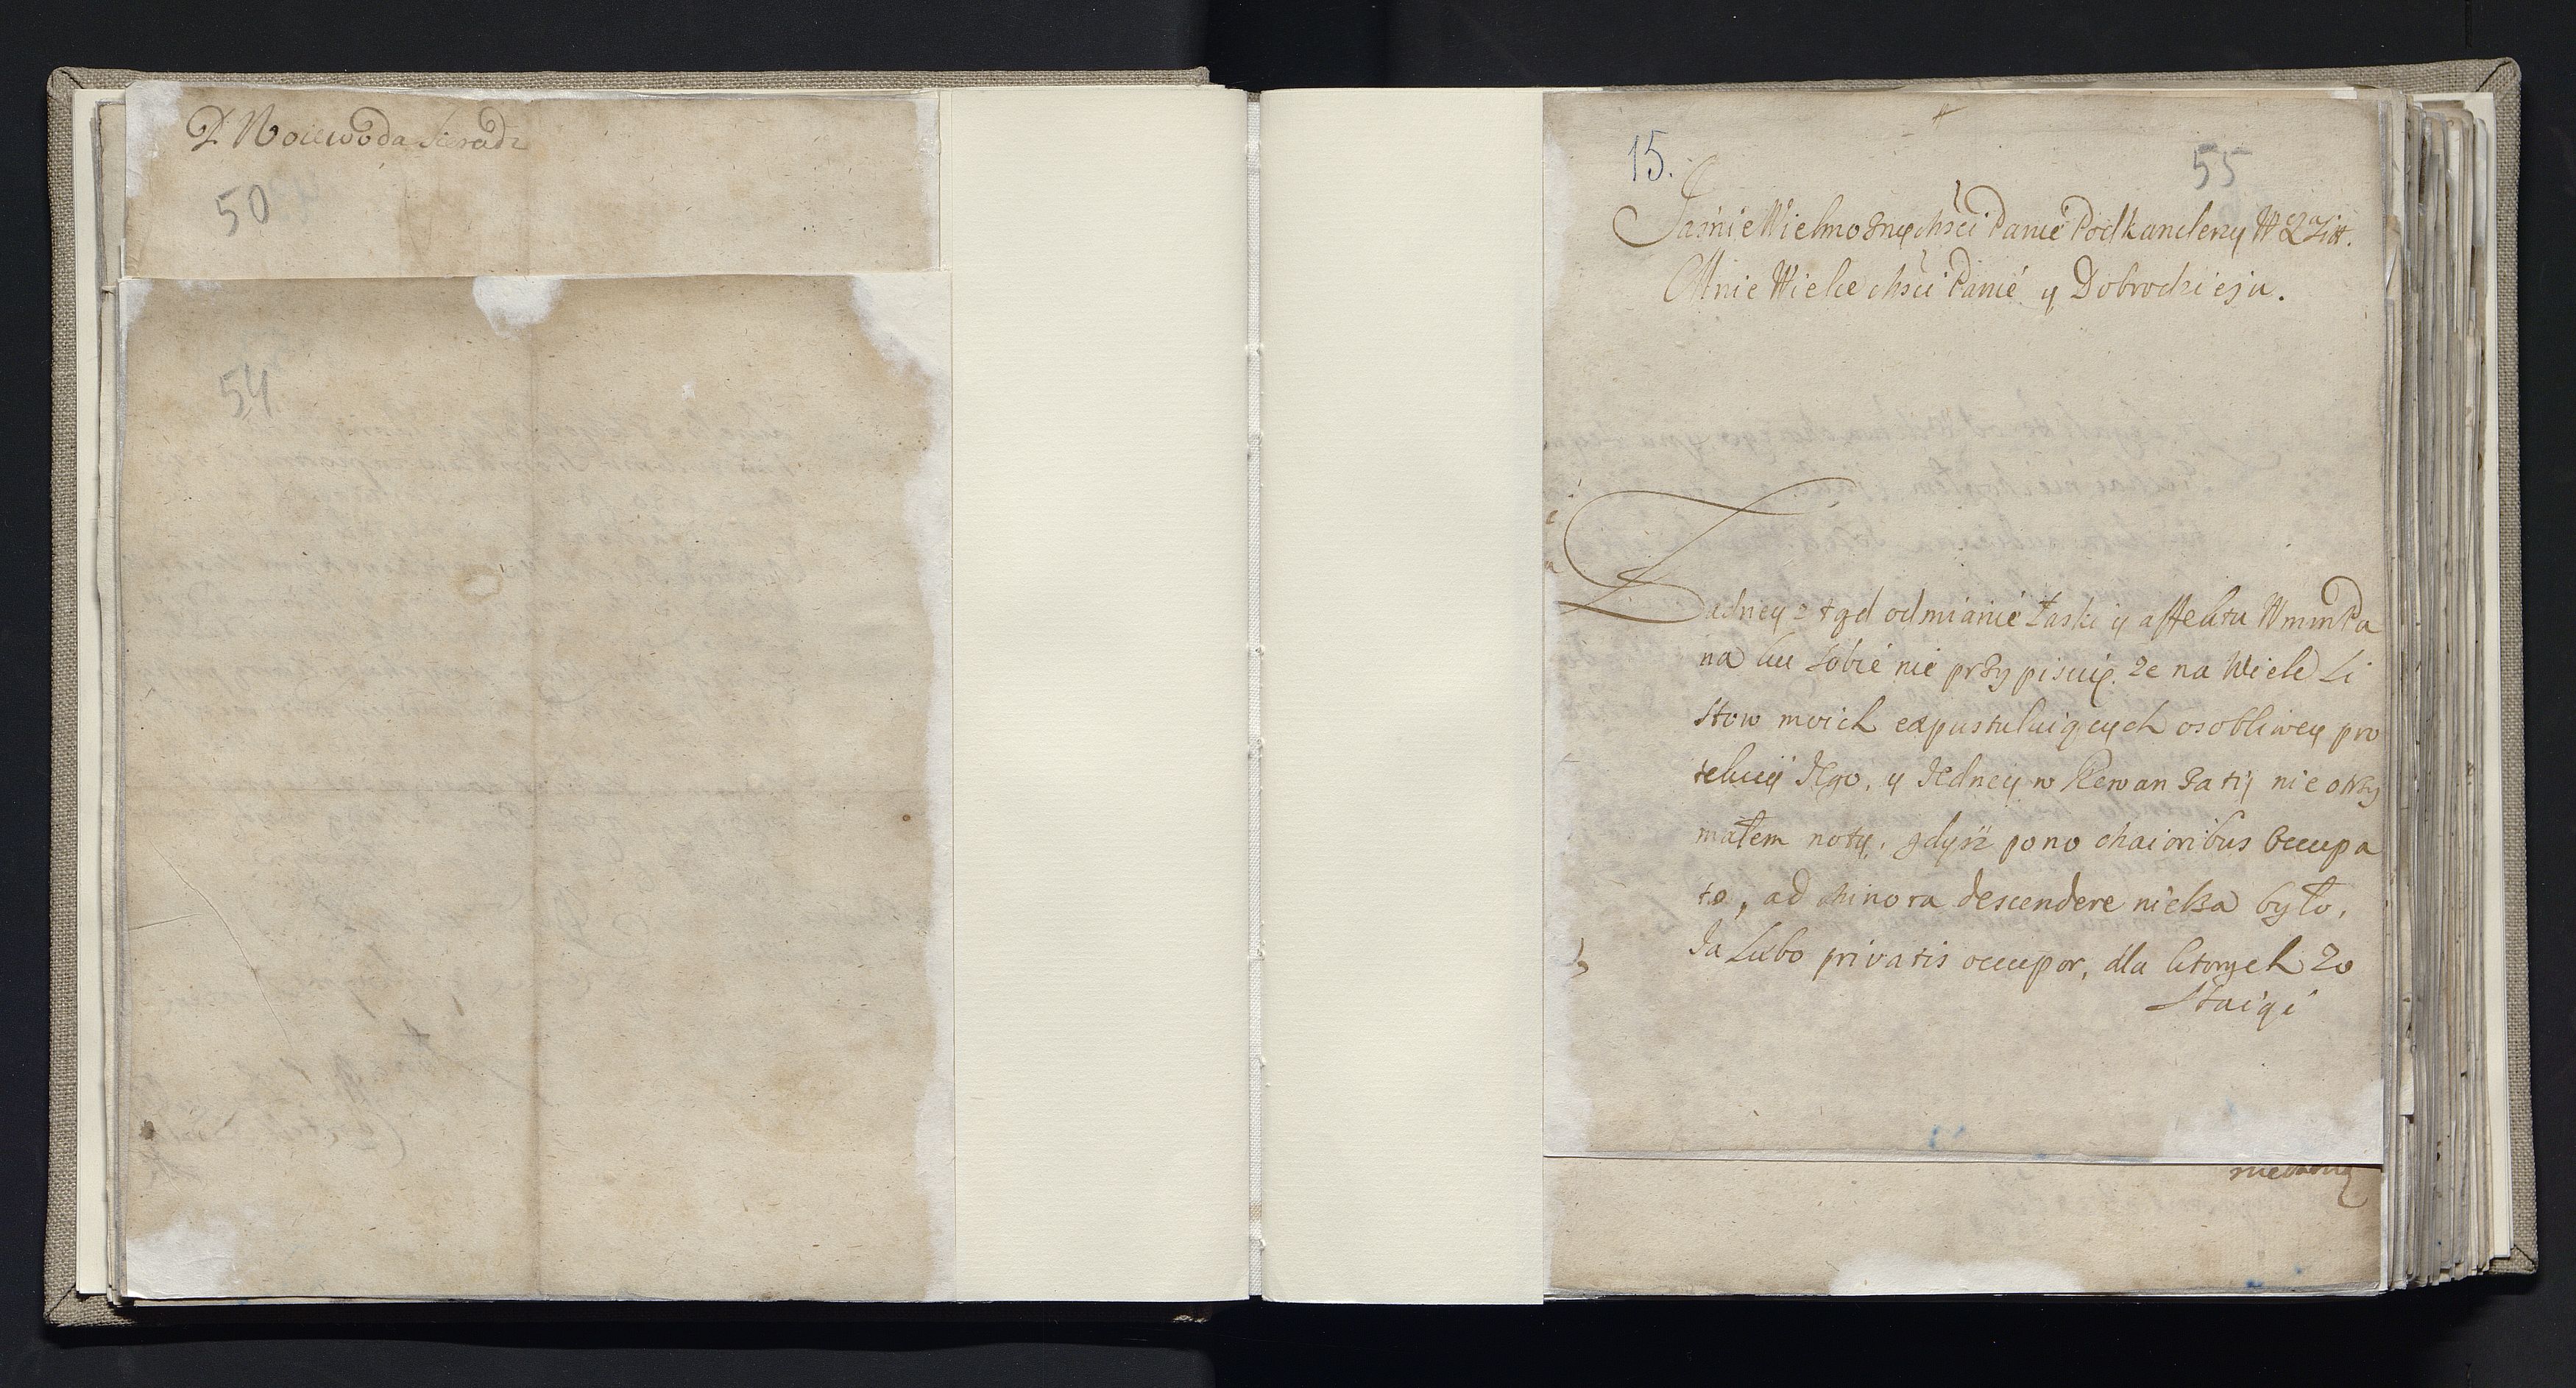 P. Woiewoda Sieradz
50
54
15.
55
Jaśnie Wielmożny Mści Panie Podkanclerzy W X Litt.
Mnie Wielce Mści Panie y Dobrodzieju.
Zadney ztąd odmianie Łaski y affektu WmmPa
na ku sobie nie przypisuię. że na Wiele Li
stow moich expustuluiących osobliwey pro
tekcyi Jego, y Jedney w Rewanżatij nie otrzy
małem noty. gdysz pono Maioribus occupa
to, ad Minora descendere nielża było,
Ja Lubo privatis occupor, dla ktorych Zo
staiąi